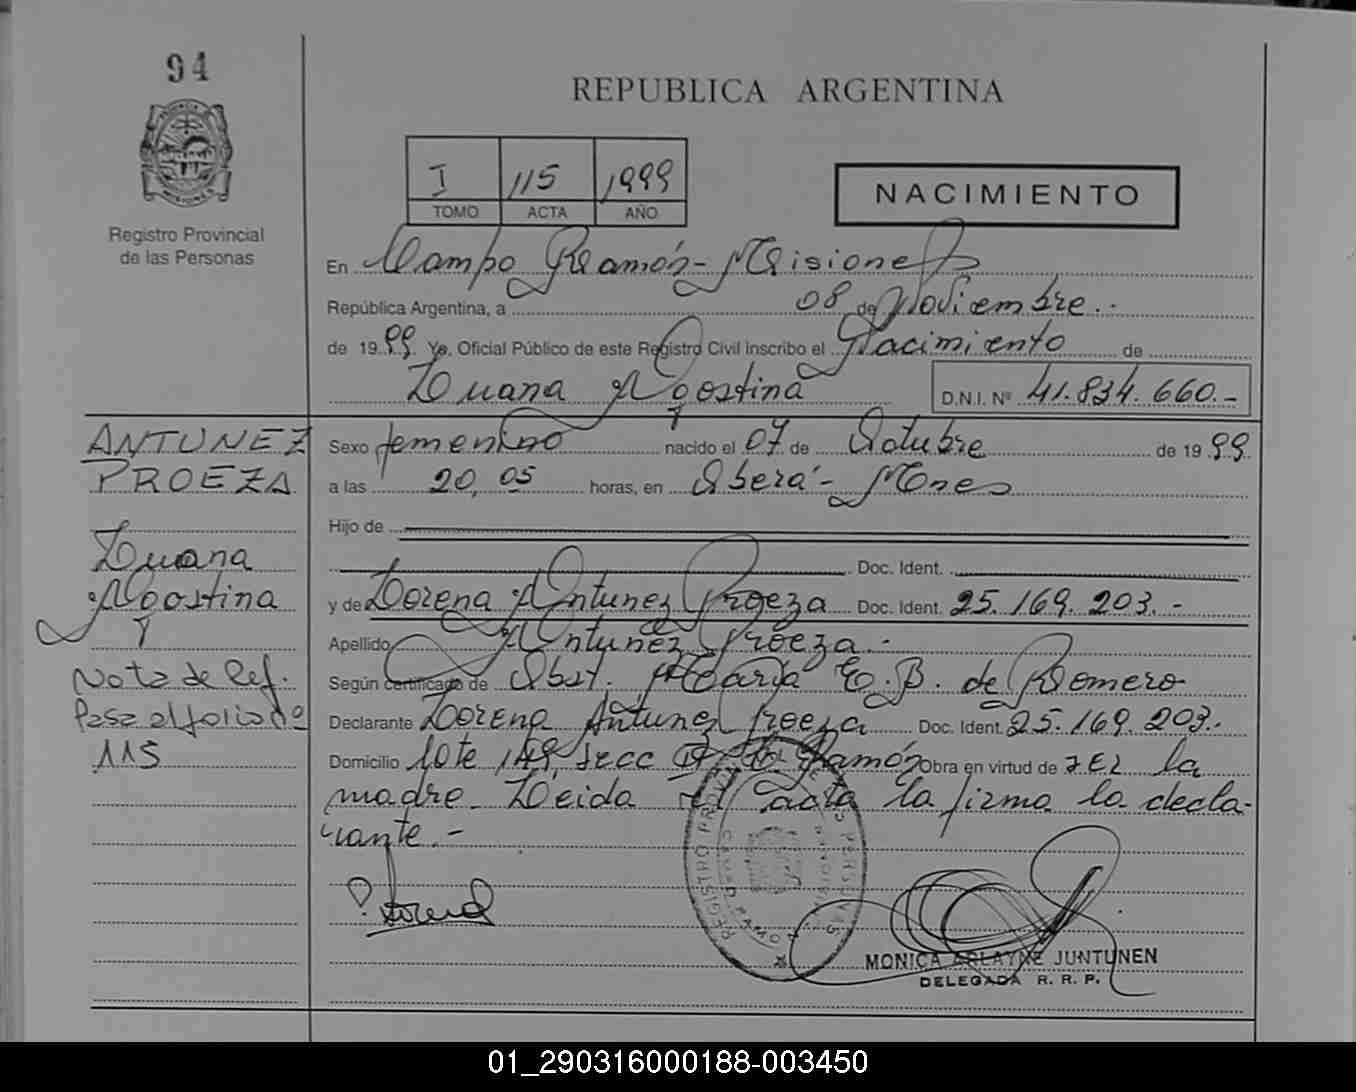 94
REPUBLICA ARGENTINA
I 115 1999
TOMO ACTA AÑO
NACIMIENTO
Registro Provincial
de las Personas
En Campo Ramón - Misiones
República Argentina, a 08 de Noviembre.-
de 1999. Yo, Oficial Público de este Registro Civil inscribo el Nacimiento de
Luana Agostina D.N.I. Nº 41.834.660.-
ANTUNEZ
PROEZA
Luana
Agostina
Nota de Ref.
Pasa al folio nº
115
Sexo femenino nacido el 07 de Octubre de 1999.
a las 20,05 horas, en Oberá - Mnes
Hijo de
Doc. Ident.
y de Lorena Antunez Proeza Doc. Ident. 25.169.203.-
Apellido Antunez Proeza.-
Según certificado de Obst. María E. B. de Romero
Declarante Lorena Antunez Proeza Doc. Ident. 25.169.203.
Domicilio lote 149, Secc Ramón Obra en virtud de ser la
madre. Leida el acta la firma la decla-
rante.-
REGISTRO PROVINCIAL DE LAS PERSONAS
CAMPO RAMON
MONICA ARLAYNE JUNTUNEN
DELEGADA R. R. P.
01_290316000188-003450